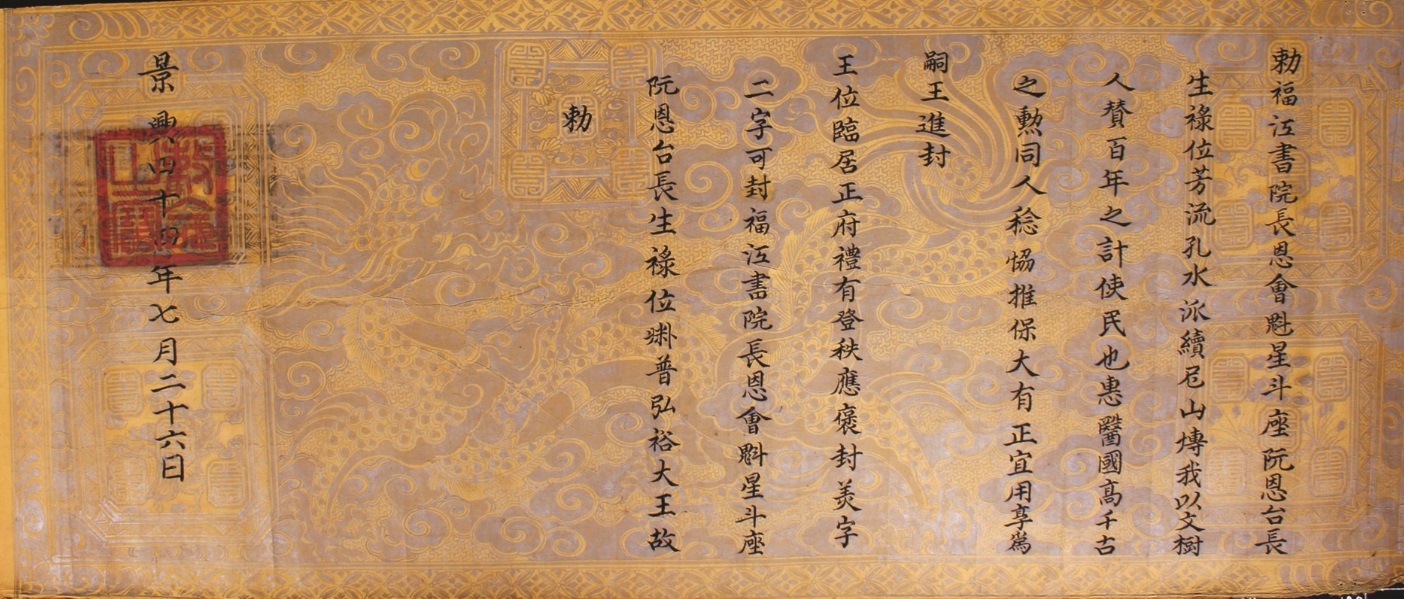 勅福江書院長恩會魁星斗座阮恩台長
生祿位芳流孔水派續尼山慱我以文樹
人賛百年之計使民也惠醫國高千古
之勲同人稔恊推保大有正宜用享爲
嗣王進封
王位臨居正府禮有登秩應褒封美字
二字可封福江書院長恩會魁星斗座
阮恩台長生祿位普弘裕大王故
勅
景興四十四年七月二十六日
敕命之寶